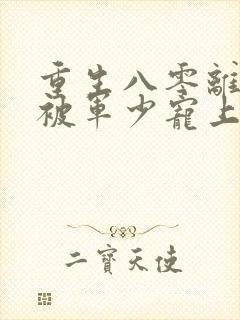 重生八零離
被軍少寵上
二寶天使